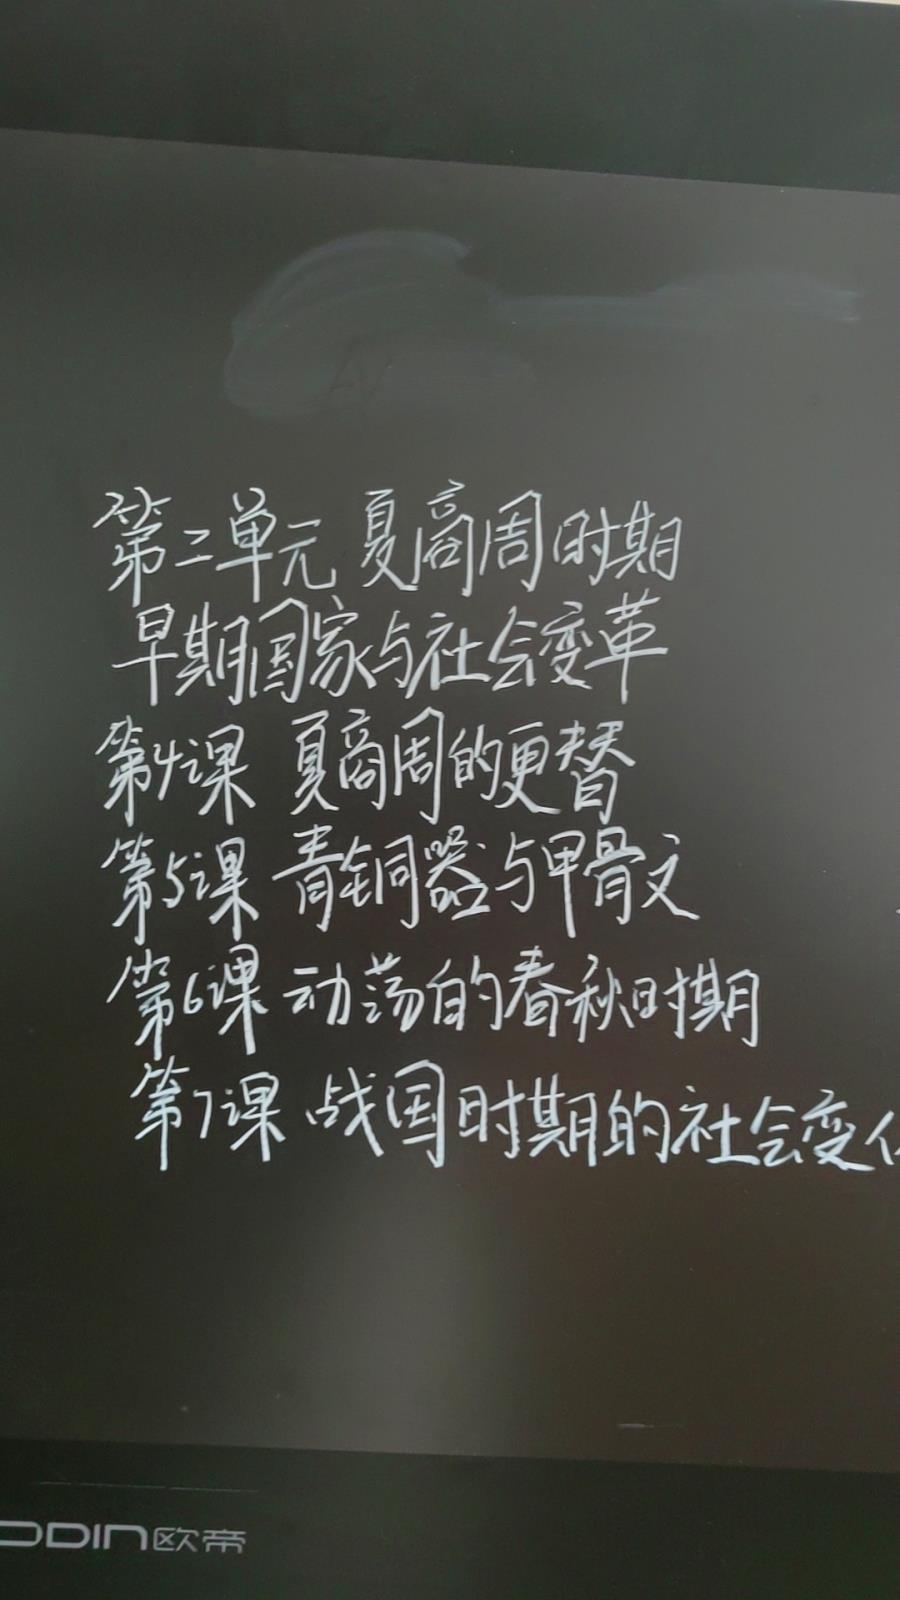 第二单元 夏商周时期
早期国家与社会变革
第4课 夏商周的更替
第5课 青铜器与甲骨文
第6课 动荡的春秋时期
第7课 战国时期的社会变
ODIN欧帝